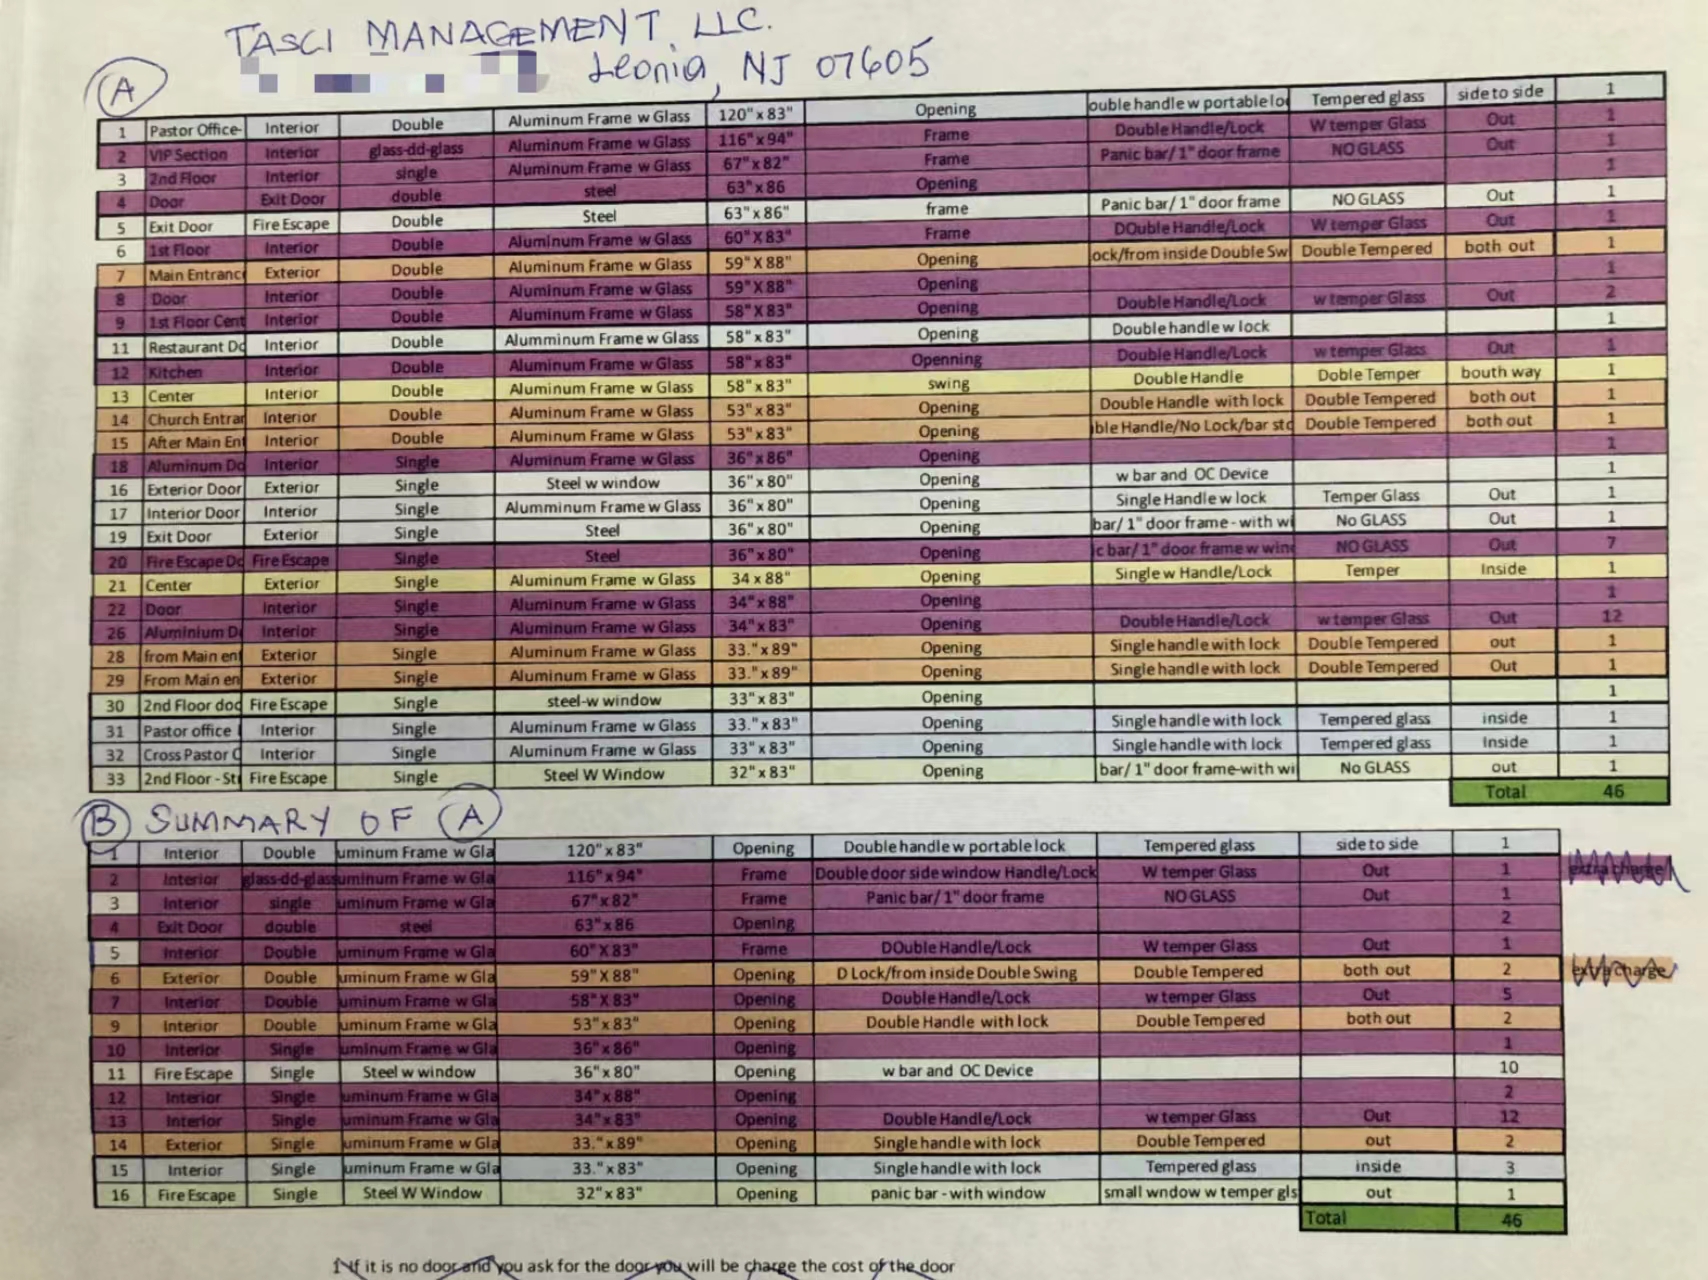 TASCI MANAGEMENT LLC.
Leonia, NJ 07605
A
1 Pastor Office- Interior Double Aluminum Frame w Glass 120"x83" Opening ouble handle w portable lo Tempered glass side to side 1
2 VIP Section Interior glass-dd-glass Aluminum Frame w Glass 116"x94" Frame Double Handle/Lock W temper Glass Out 1
3 2nd Floor Interior single Aluminum Frame w Glass 67"x82" Frame Panic bar/ 1" door frame NO GLASS Out 1
4 Door Exit Door double steel 63"x86 Opening 1
5 Exit Door Fire Escape Double Steel 63"x86" frame Panic bar/ 1" door frame NO GLASS Out 1
6 1st Floor Interior Double Aluminum Frame w Glass 60"X83" Frame DOuble Handle/Lock W temper Glass Out 1
7 Main Entranc Exterior Double Aluminum Frame w Glass 59"X88" Opening ock/from inside Double Sw Double Tempered both out 1
8 Door Interior Double Aluminum Frame w Glass 59"X88" Opening 1
9 1st Floor Cent Interior Double Aluminum Frame w Glass 58"X83" Opening Double Handle/Lock w temper Glass Out 2
11 Restaurant Do Interior Double Alumminum Frame w Glass 58"x83" Opening Double handle w lock 1
12 Kitchen Interior Double Aluminum Frame w Glass 58"x83" Openning Double Handle/Lock w temper Glass Out 1
13 Center Interior Double Aluminum Frame w Glass 58"x83" swing Double Handle Doble Temper bouth way 1
14 Church Entrar Interior Double Aluminum Frame w Glass 53"x83" Opening Double Handle with lock Double Tempered both out 1
15 After Main Ent Interior Double Aluminum Frame w Glass 53"x83" Opening ble Handle/No Lock/bar sto Double Tempered both out 1
18 Aluminum Do Interior Single Aluminum Frame w Glass 36"x86" Opening 1
16 Exterior Door Exterior Single Steel w window 36"x80" Opening w bar and OC Device 1
17 Interior Door Interior Single Alumminum Frame w Glass 36"x80" Opening Single Handle w lock Temper Glass Out 1
19 Exit Door Exterior Single Steel 36"x80" Opening bar/ 1" door frame - with wi No GLASS Out 1
20 Fire Escape Do Fire Escape Single Steel 36"x80" Opening c bar/ 1" door frame w wind NO GLASS Out 7
21 Center Exterior Single Aluminum Frame w Glass 34 x 88" Opening Single w Handle/Lock Temper Inside 1
22 Door Interior Single Aluminum Frame w Glass 34"x88" Opening 1
26 Aluminium D Interior Single Aluminum Frame w Glass 34"x83" Opening Double Handle/Lock w temper Glass Out 12
28 from Main ent Exterior Single Aluminum Frame w Glass 33."x89" Opening Single handle with lock Double Tempered out 1
29 From Main en Exterior Single Aluminum Frame w Glass 33."x89" Opening Single handle with lock Double Tempered Out 1
30 2nd Floor doo Fire Escape Single steel-w window 33"x83" Opening 1
31 Pastor office Interior Single Aluminum Frame w Glass 33."x83" Opening Single handle with lock Tempered glass inside 1
32 Cross Pastor O Interior Single Aluminum Frame w Glass 33"x83" Opening Single handle with lock Tempered glass Inside 1
33 2nd Floor - St Fire Escape Single Steel W Window 32"x83" Opening bar/ 1" door frame-with wi No GLASS out 1
Total 46
B SUMMARY OF A
1 Interior Double uminum Frame w Gla 120"x83" Opening Double handle w portable lock Tempered glass side to side 1
2 Interior glass-dd-glass uminum Frame w Gla 116"x94" Frame Double door side window Handle/Lock W temper Glass Out 1 extra charge
3 Interior single uminum Frame w Gla 67"x82" Frame Panic bar/ 1" door frame NO GLASS Out 1
4 Exit Door double steel 63"x86 Opening 2
5 Interior Double uminum Frame w Gla 60"X83" Frame DOuble Handle/Lock W temper Glass Out 1
6 Exterior Double uminum Frame w Gla 59"X88" Opening D Lock/from inside Double Swing Double Tempered both out 2 extra charge
7 Interior Double uminum Frame w Gla 58"X83" Opening Double Handle/Lock w temper Glass Out 5
9 Interior Double uminum Frame w Gla 53"x83" Opening Double Handle with lock Double Tempered both out 2
10 Interior Single uminum Frame w Gla 36"x86" Opening 1
11 Fire Escape Single Steel w window 36"x80" Opening w bar and OC Device 10
12 Interior Single uminum Frame w Gla 34"x88" Opening 2
13 Interior Single uminum Frame w Gla 34"x83" Opening Double Handle/Lock w temper Glass Out 12
14 Exterior Single uminum Frame w Gla 33."x89" Opening Single handle with lock Double Tempered out 2
15 Interior Single uminum Frame w Gla 33."x83" Opening Single handle with lock Tempered glass inside 3
16 Fire Escape Single Steel W Window 32"x83" Opening panic bar - with window small wndow w temper gls out 1
Total 46
If it is no door and you ask for the door you will be charge the cost of the door